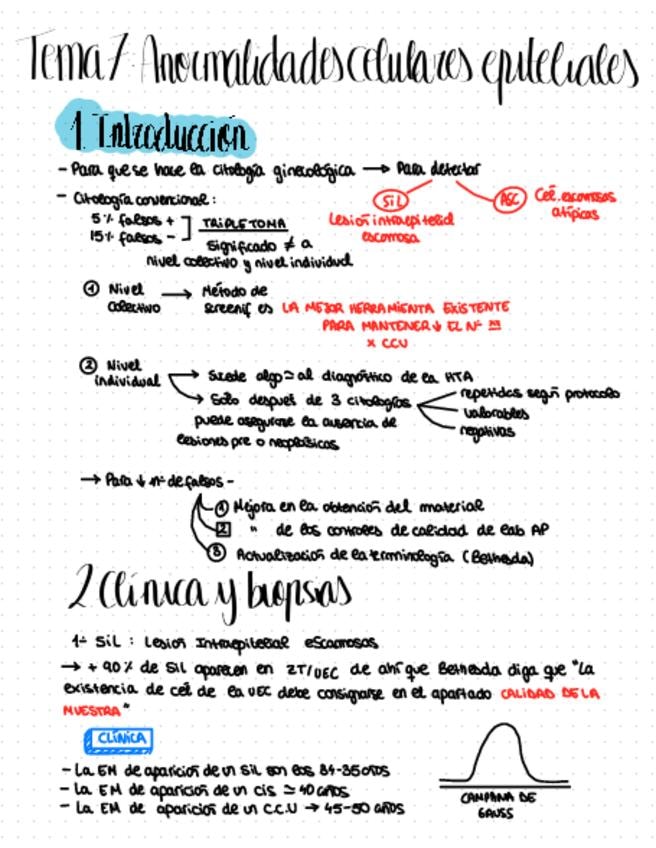 Tema 7: Anormalidades celulares epiteliales
1 Introducción
- Para que se hace la citología ginecológica → Para detectar
SiL
ASC
Cel. escamosas
atípicas
Lesión intraepitelial
escamosa
- Citología convencional:
5% falsos +
15% falsos -
TRiPLE TOMA
significado ≠ a
nivel colectivo y nivel individual
① Nivel
colectivo
→ Método de
screenif es LA MEJOR HERRAMIENTA EXISTENTE
PARA MANTENER ↓ EL Nº
x CCU
② Nivel
individual
→ Sucede algo ≃ al diagnóstico de la HTA
→ Solo después de 3 citologías
puede asegurarse la ausencia de
lesiones pre o neoplásicas
repetidas según protocolo
valorables
negativas
→ Para ↓ nº de falsos -
① Mejora en la obtención del material
2 " de los controles de calidad de lab AP
③ Actualización de la terminología (Bethesda)
2 Clínica y biopsias
1- SiL : Lesión Intraepitelial escamosas
→ + 90% de SIL aparecen en ZT/UEC de ahí que Bethesda diga que "La
existencia de cel de la UEC debe consignarse en el apartado CALIDAD DE LA
MUESTRA"
CLÍNICA
- La EM de aparición de un SIL son los 34-35 años
- La EM de aparición de un cis ≃ 40 años
- La EM de aparición de un C.C.U → 45-50 años
CAMPANA DE
GAUSS